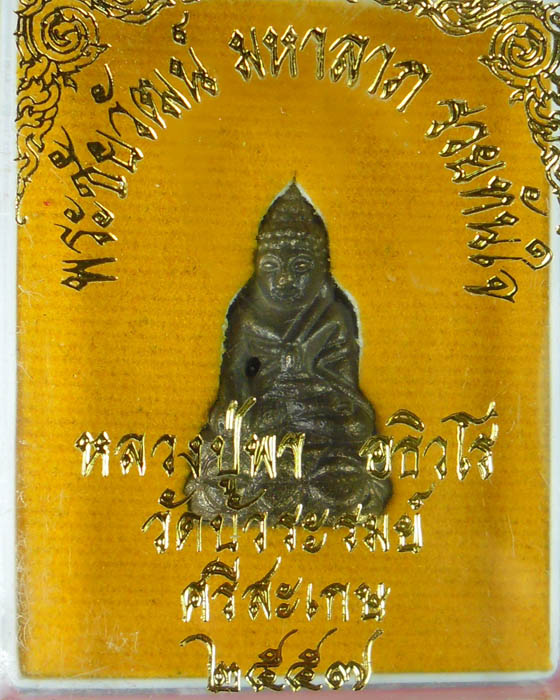 พระชัยวัฒน์ มหาลาภ รวยทันใจ
หลวงปู่พา อธิวโร
วัดบัวระรมย์
ศรีสะเกษ
๒๕๕๗